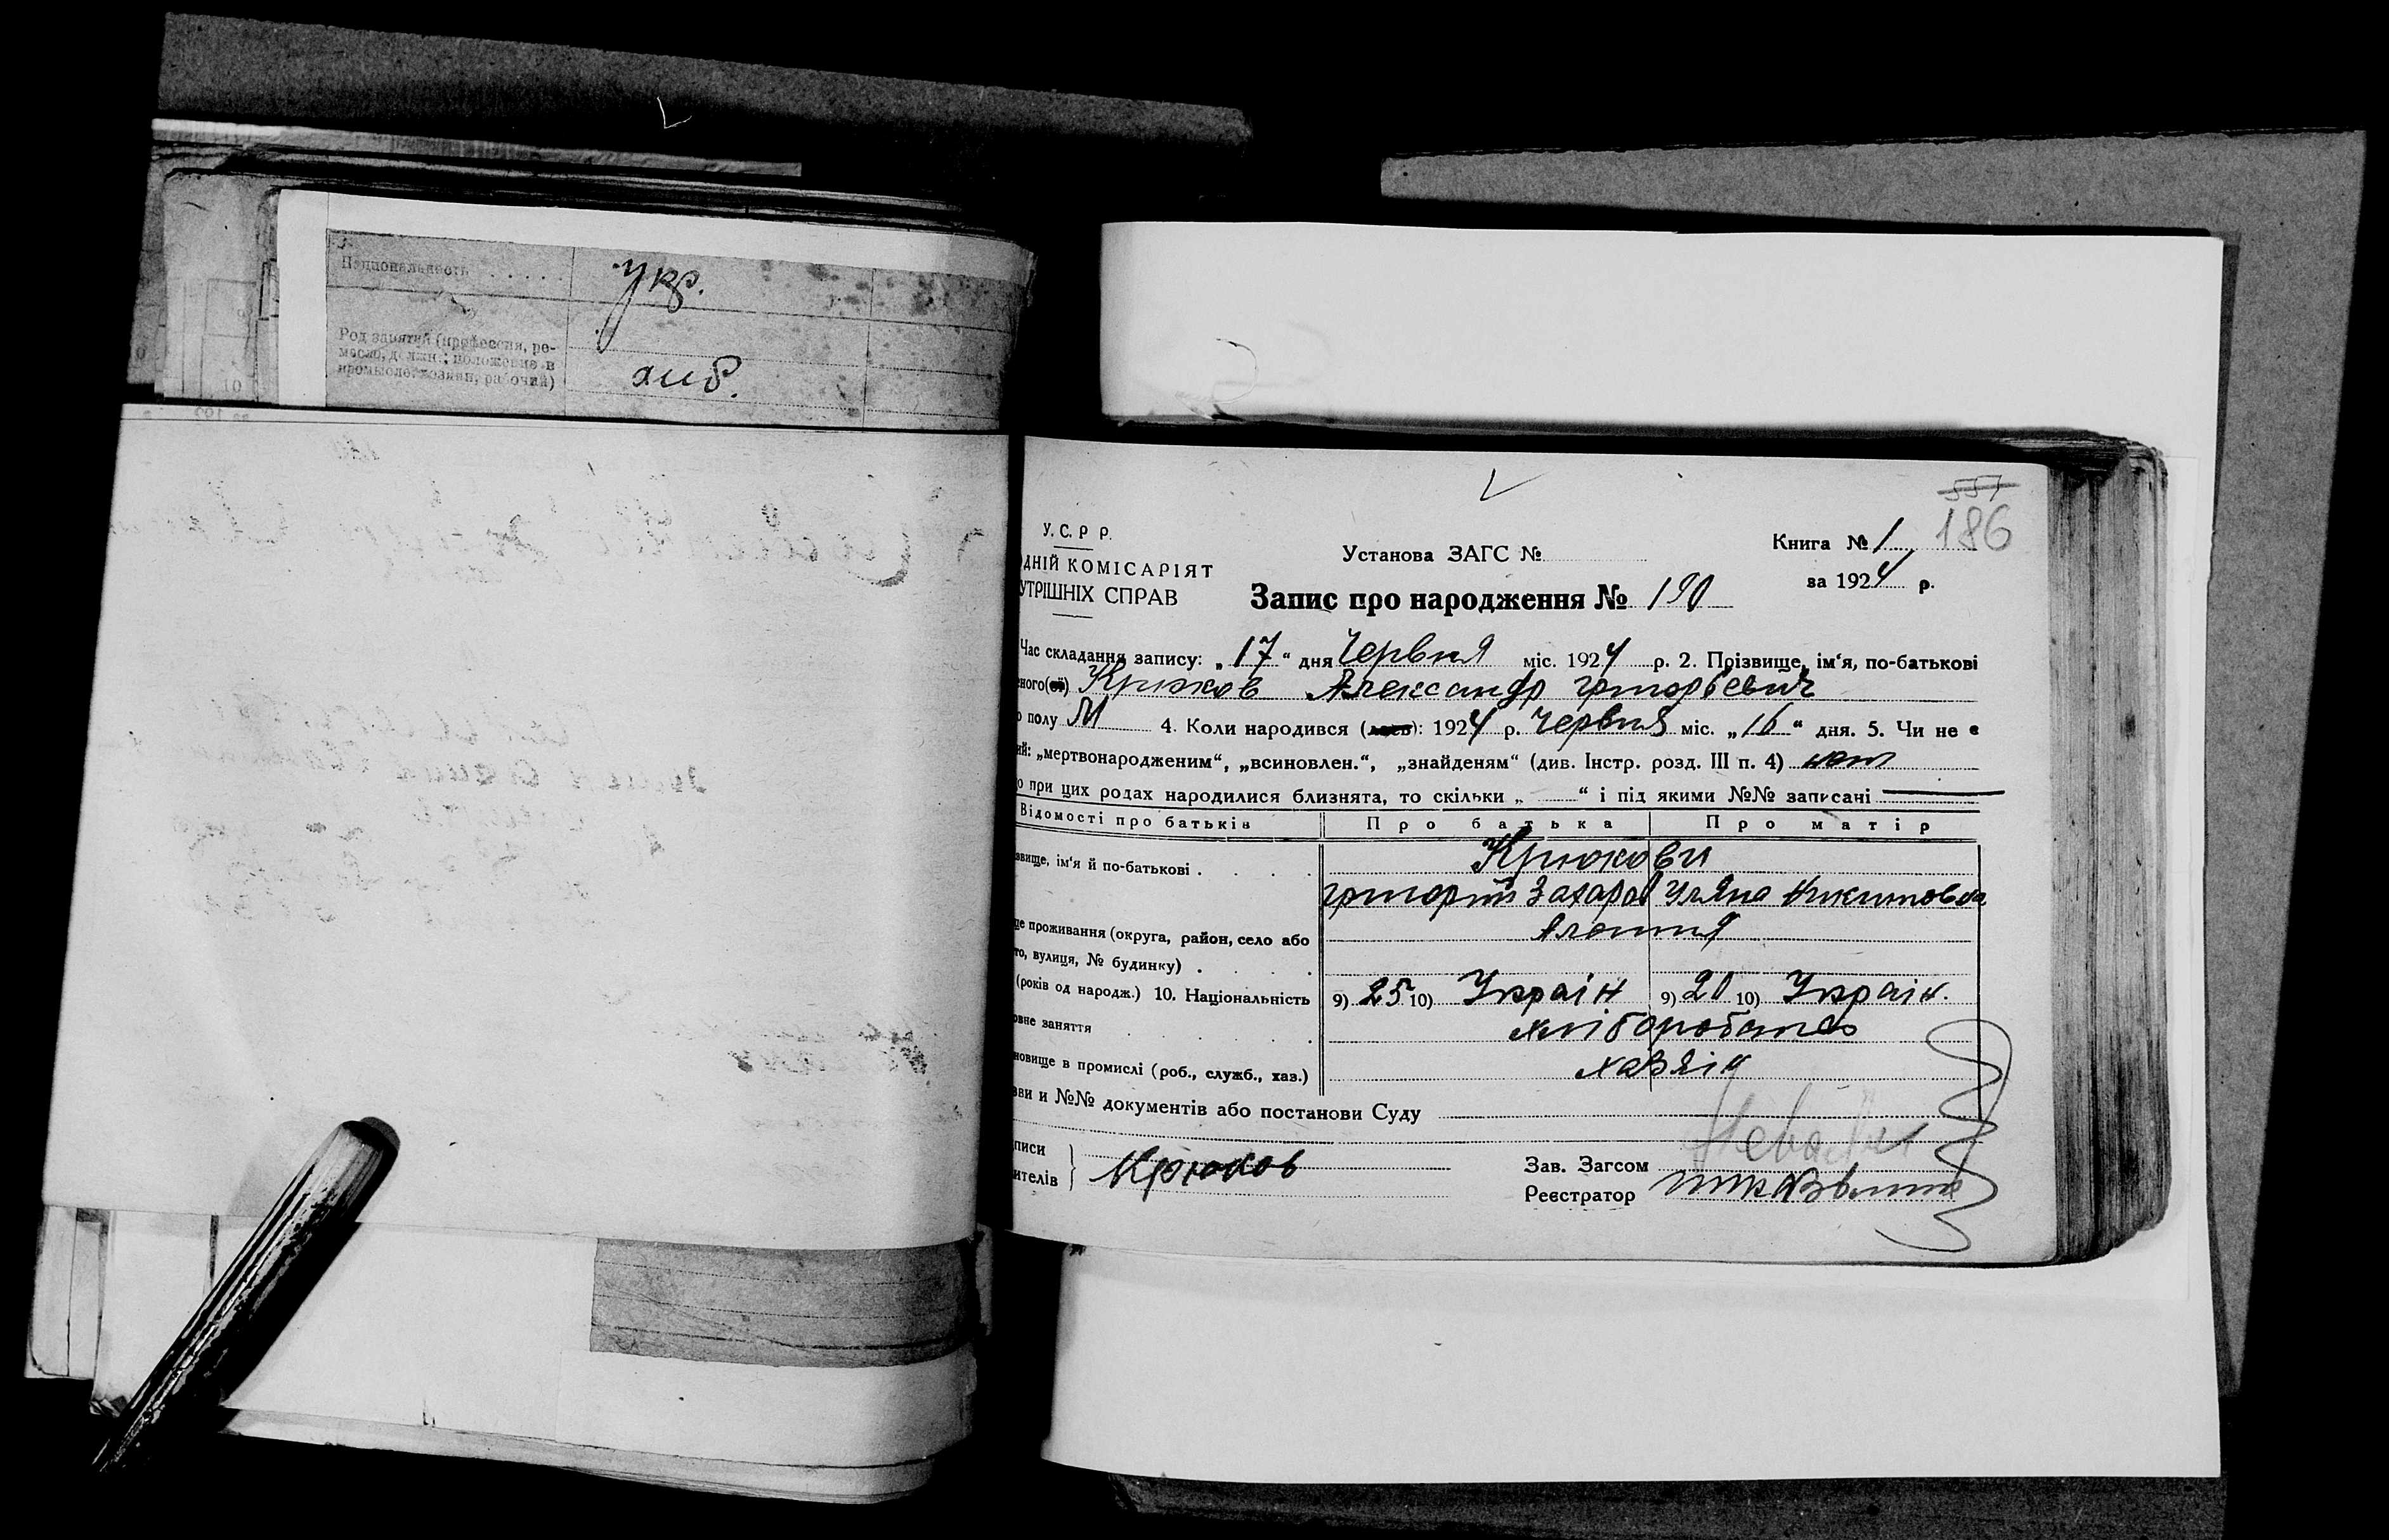 Национальность . . . . .
укр.
Род занятий (профессия, ре-
месло, должн.; положение в
промысле: хозяин, рабочий)
хлib.
10
557
186
У.С.Р Р.
ДНІЙ КОМІСАРІЯТ
УТРІШНІХ СПРАВ
Установа ЗАГС №
Книга № 1
за 1924 р.
Запис про народження № 190
Час складання запису: „ 17 “ дня Червня міс. 1924 р. 2. Прізвище, ім‘я, по-батькові
ного(ої) Крюков Александр Григорьевич
полу М 4. Коли народився (лась): 1924 р. Червня міс. „ 16 “ дня. 5. Чи не є
ий: „мертвонародженим“, „всиновлен.“, „знайденям“ (див. Інстр. розд. III п. 4) нет
о при цих родах народилися близнята, то скільки „ “ і під якими №№ записані
Відомості про батьків Про батька Про матір
звище, ім‘я й по-батькові . . . . Крюкови
Григорій Захаров Уляна Никитовна
це проживання (округа, район, село або
то, вулиця, № будинку) . . .
(років од народж.) 10. Національність 9) 25 10) Україн 9) 20 10) Україн.
овне заняття . . . . хліборобство
новище в промислі (роб., служб., хаз.) хазяін
зви и №№ документів або постанови Суду
писи
ителів } Крюков
Зав. Загсом
Реєстратор